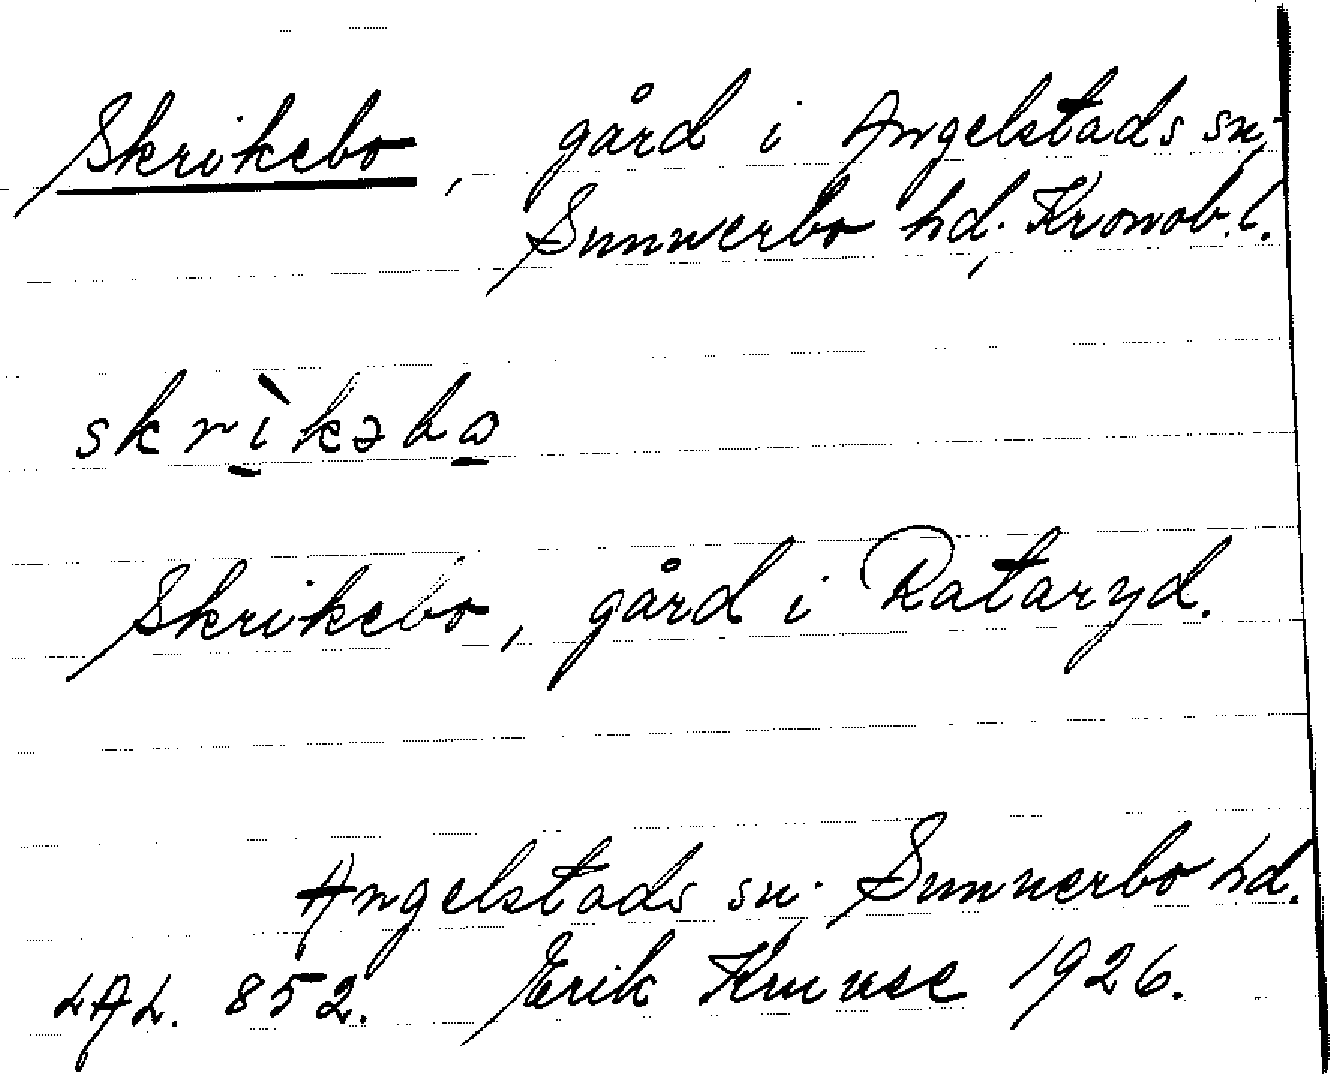 Skrikebo, gård i Angelstads sn,
Sunnerbo hd. Kronob. l.
skrìkəbo
Skrikebo, gård i Rataryd.
Angelstads sn. Sunnerbo hd.
LAL. 852. Erik Kruuse 1926.